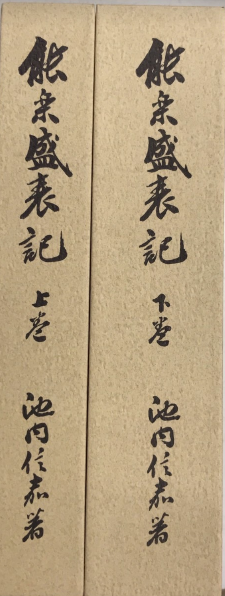 能楽盛衰記 下巻 池内信嘉著
能楽盛衰記 上巻 池内信嘉著